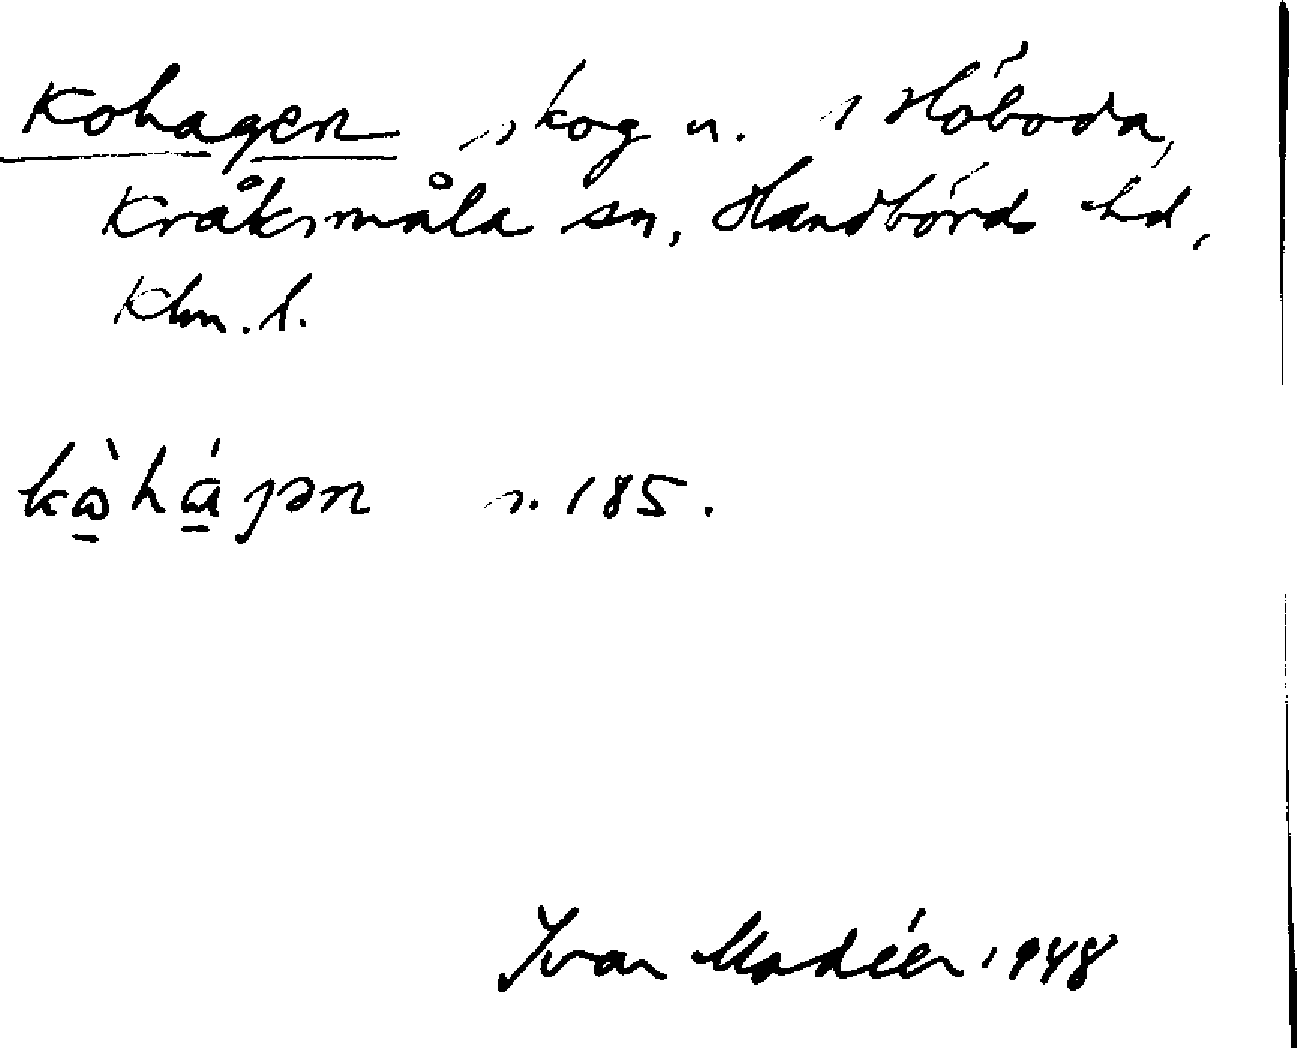 Kohagen, skog n. i Höboda,
Kråksmåla sn, Handbörds hd,
Klm. l.
kὼ̱hɑ̱́gən s. 185.
Ivar Modéer 1948